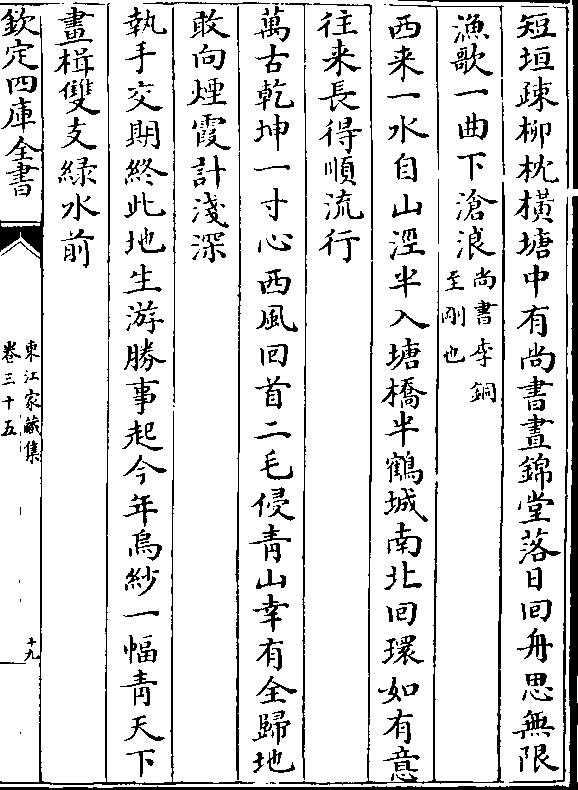 短垣疎柳枕橫塘中有尚書晝錦堂落日回舟思無限
漁歌一曲下滄浪尚書李銅
至剛也
西来一水自山涇半入塘橋半鶴城南北回環如有意
往来長得順流行
萬古乾坤一寸心西風回首二毛侵青山幸有全歸地
敢向煙霞計淺深
執手交期終此地生游勝事起今年烏紗一幅青天下
畫楫雙支緑水前
欽定四庫全書
東江家藏集
卷三十五
十九